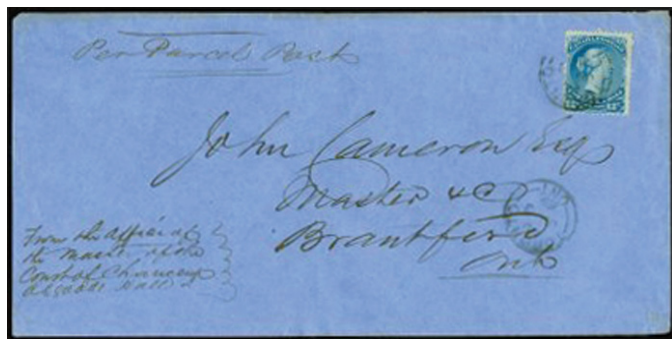 Per Parcel Post
John Cameron Esq
Master &c
Brantford
Ont
From the Office of
the Master of the
Court of Chancery
Osgoode Hall